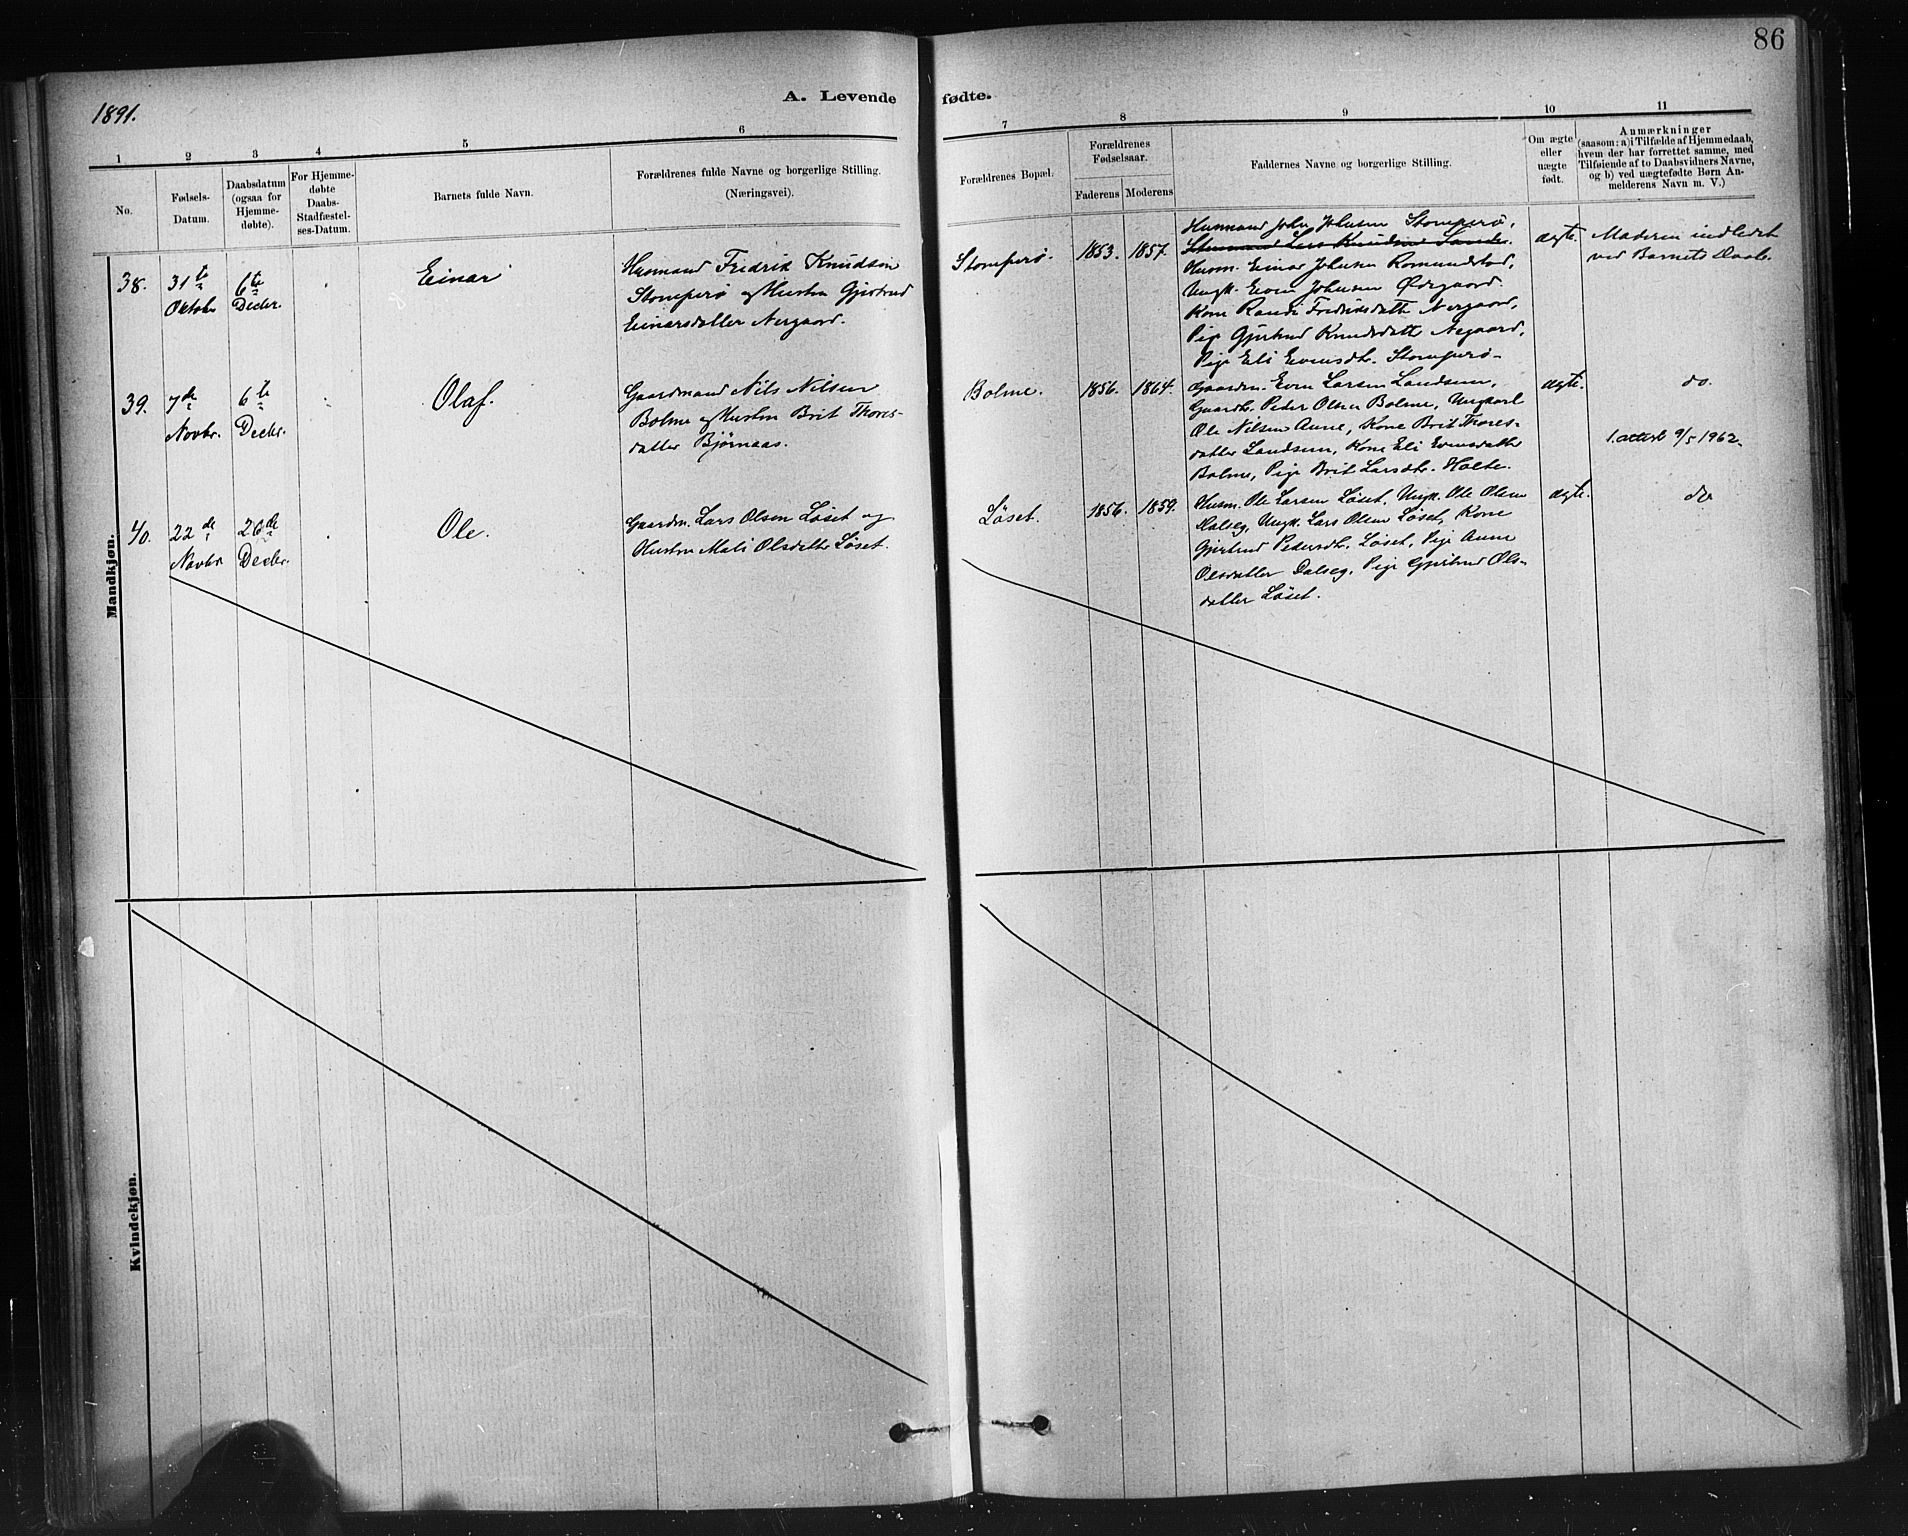 86
1891.
A. Levende fødte.
1 2 3 4 5 6 7 8 9 10 11
No.
Fødsels-
Datum.
Daabsdatum
(ogsaa for
Hjemme-
døbte).
For Hjemme-
døbte
Daabs-
Stadfæstel-
ses-Datum.
Barnets fulde Navn.
Forældrenes fulde Navne og borgerlige Stilling.
(Næringsvei).
Forældrenes Bopæl.
Forældrenes
Fødselsaar.
Faderens Moderens
Faddernes Navne og borgerlige Stilling.
Om ægte
eller
uægte
født.
Anmærkninger
(saasom: a) i Tilfælde af Hjemmedaab,
hvem der har forrettet samme, med
Tilføiende af to Daabsvidners Navne,
og b) ved uægtefødte Børn An-
melderens Navn m. V.)
Mandkjøn.
38.
31te
Oktobr
6te
Decbr.
Einar
Husmand Fredrik Knudsen
Stomperø og Hustru Gjertrud
Einarsdatter Nergaard.
Stomperø.
1853. 1857.
Husmand John Johnsen Stomperø,
Husmand Lars Knudsen
Husm. Einar Johnsen Romundstad,
Ungk. Even Johnsen Ødegaard,
Kone Randi Fredriksdatter Nergaard,
Pige Gjertrud Knudsdatter Negaard,
Pige Eli Evensdtr. Stomperø-
ægte.
Moderen indledet
ved Barnets Daab.
39.
7de
Novbr.
6te
Decbr.
Olaf.
Gaardmand Nils Nilsen
Bolme og Hustru Brit Thores-
datter Bjørnaas.
Bolme.
1856. 1864.
Gaardm. Even Larsen Landsem,
Gaardbr. Peder Olsen Bolme, Ungkarl
Ole Nilsen Aune, Kone Brit Thores-
datter Landsem, Kone Eli Evensdatter
Bolme, Pige Brit Larsdtr. Holte.
ægte.
do.
1. attest 9/5 1962.
40.
22de
Novbr
26de
Decbr.
Ole.
Gaardm. Lars Olsen Løset og
Hustru Mali Olsdatter Løset.
Løset.
1856. 1859.
Husm. Ole Larsen Løset, Ungk. Ole Olsen
Ungk. Lars Olsen Løset, Kone
Gjertrud Pedersdtr. Løset, Pige Anne
Olsdatter Dalseg, Pige Gjertrud Ols-
datter Løset.
ægte.
do
Kvindekjøn.